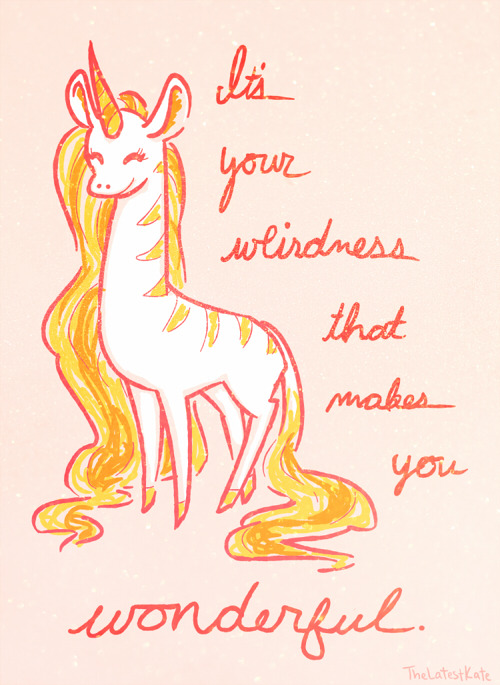 It's
your
weirdness
that
makes
you
wonderful.
TheLatestKate